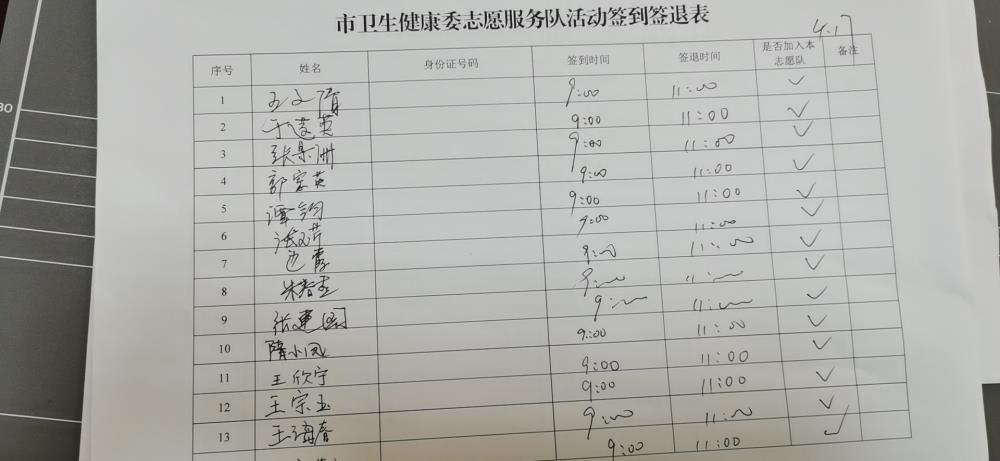 市卫生健康委志愿服务队活动签到签退表
4.17
序号 姓名 身份证号码 签到时间 签退时间 是否加入本志愿队 备注
1 9:00 11:00 ✓
2 9:00 11:00 ✓
3 张果洲 9:00 11:00 ✓
4 郭家英 9:00 11:00 ✓
5 谭钧 9:00 11:00 ✓
6 9:00 11:00 ✓
7 9:00 11:00 ✓
8 9:00 11:00 ✓
9 张建国 9:00 11:00 ✓
10 隋小凤 9:00 11:00 ✓
11 王欣宁 9:00 11:00 ✓
12 王宗玉 9:00 11:00 ✓
13 王海春 9:00 11:00 ✓
9:00 11:00 ✓